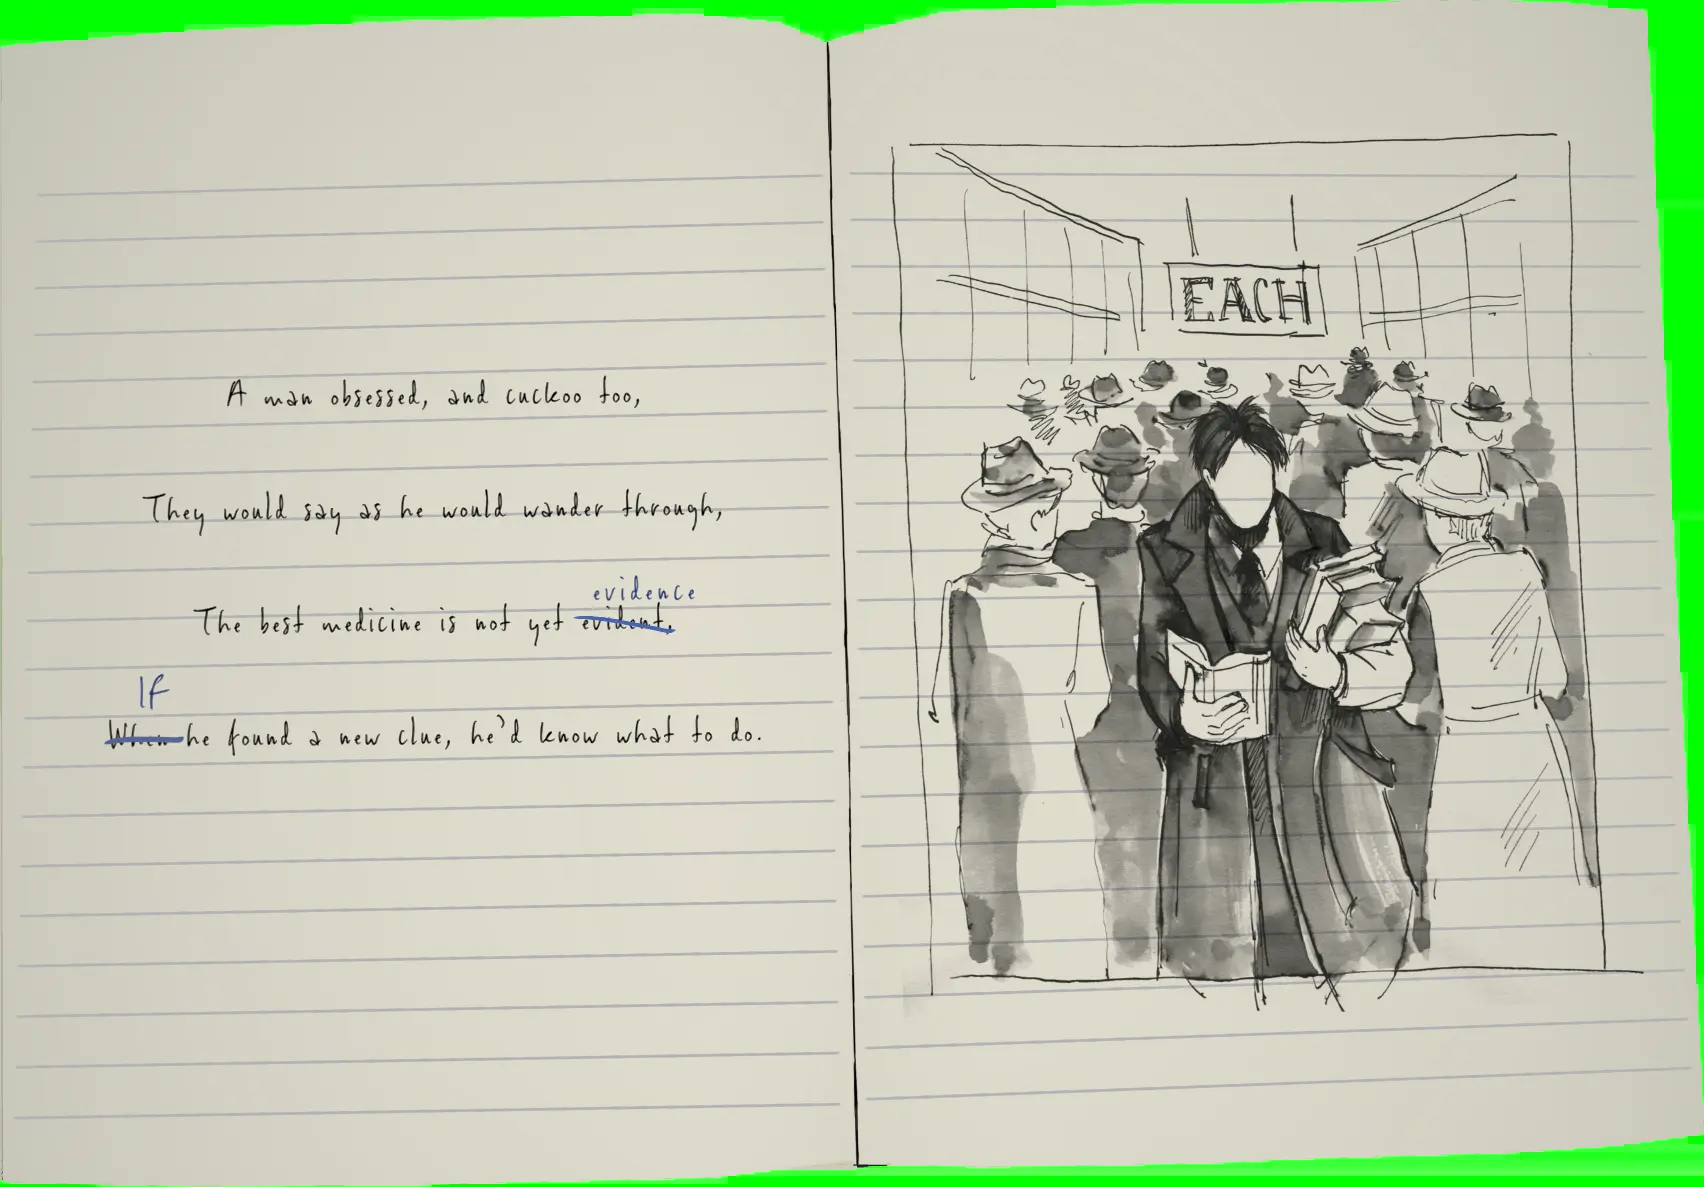 A man obsessed, and cuckoo too,
They would say as he would wander through,
evidence
The best medicine is not yet evident.
If
When he found a new clue, he'd know what to do.
EACH